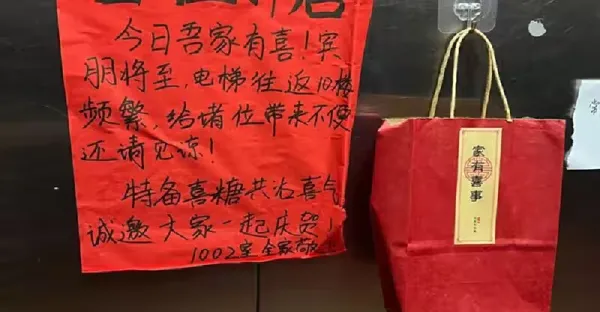 今日吾家有喜！宾
朋将至,电梯往返10楼
频繁,给诸位带来不便
还请见谅！
特备喜糖共沾喜气
诚邀大家一起庆贺！
1002室 全家敬
家有喜事